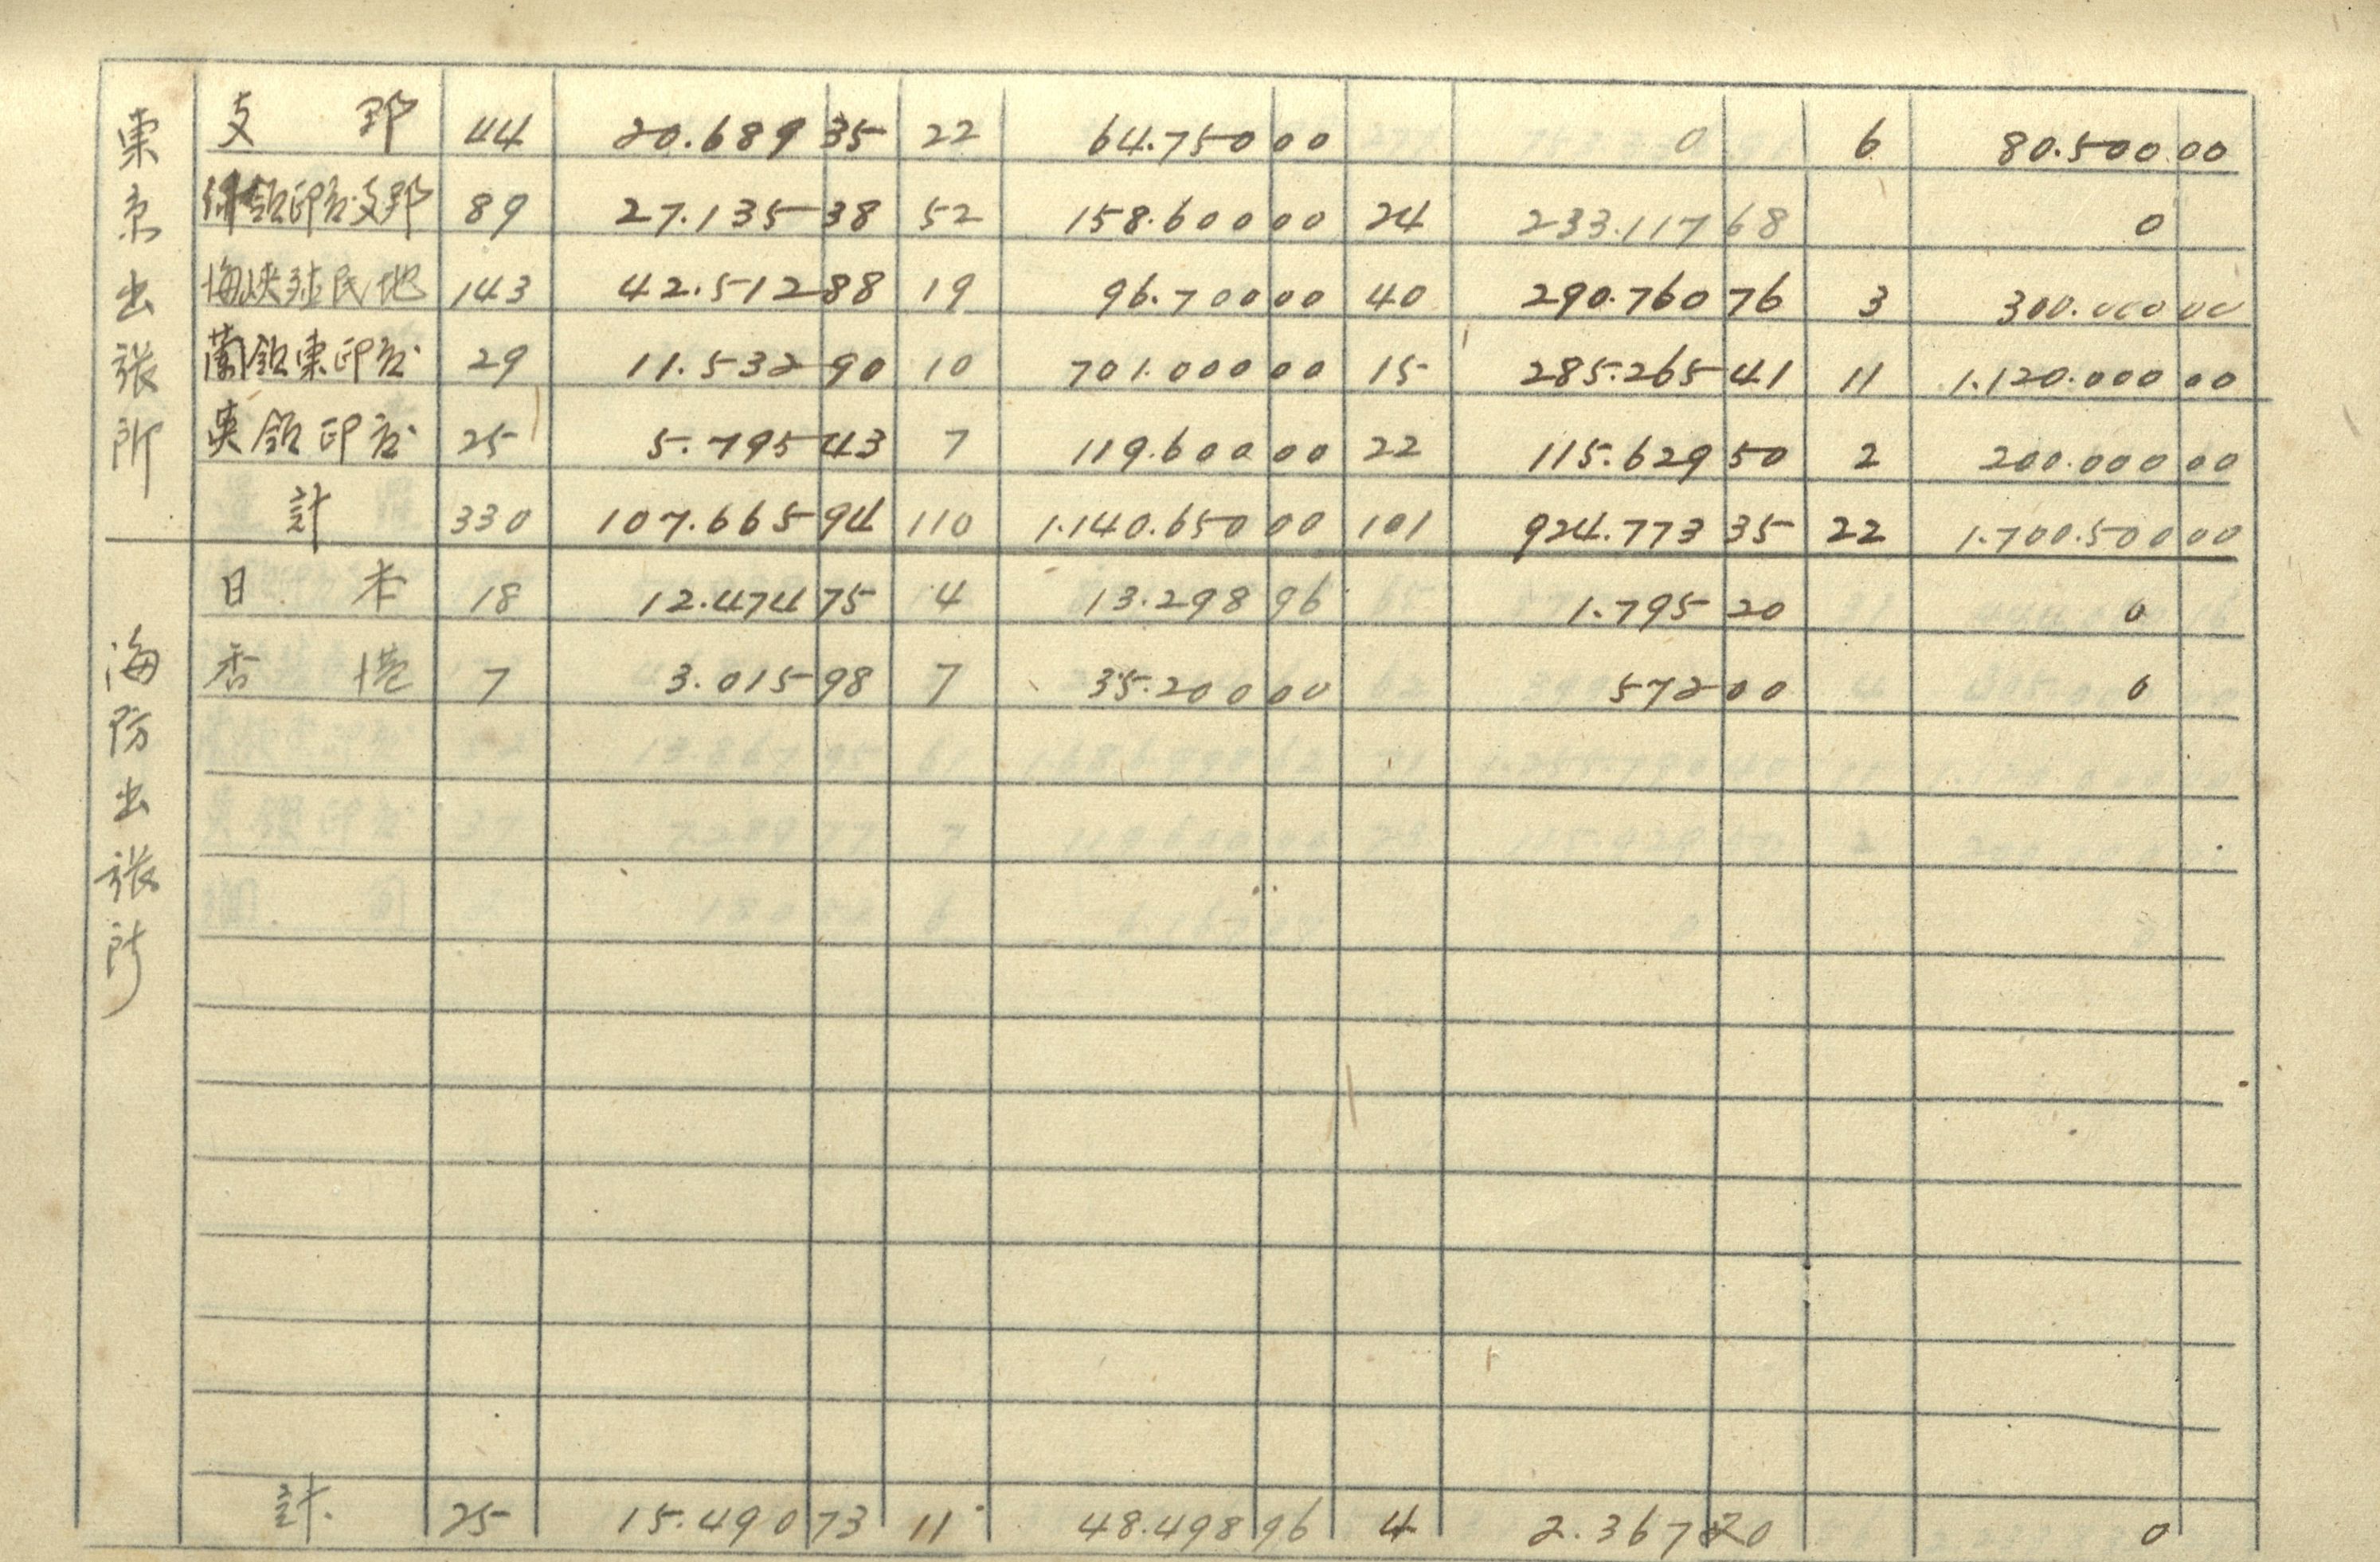 東京出張所
支那 44 20.689 35 22 64.750 00 0 6 80.500 00
佛領印度支那 89 27.135 38 52 158.600 00 24 233.117 68 0
海峡殖民地 143 42.512 88 19 96.700 00 40 290.760 76 3 300.000 00
蘭領東印度 29 11.532 90 10 701.000 00 15 285.265 41 11 1.120.000 00
英領印度 25 5.795 43 7 119.600 00 22 115.629 50 2 200.000 00
計 330 107.665 94 110 1.140.650 00 101 924.773 35 22 1.700.500 00
海防出張所
日本 18 12.474 75 4 13.298 96 1.795 20 0
香港 7 3.015 98 7 35.200 00 572 00 0
計 25 15.490 73 11 48.498 96 4 2.367 20 0